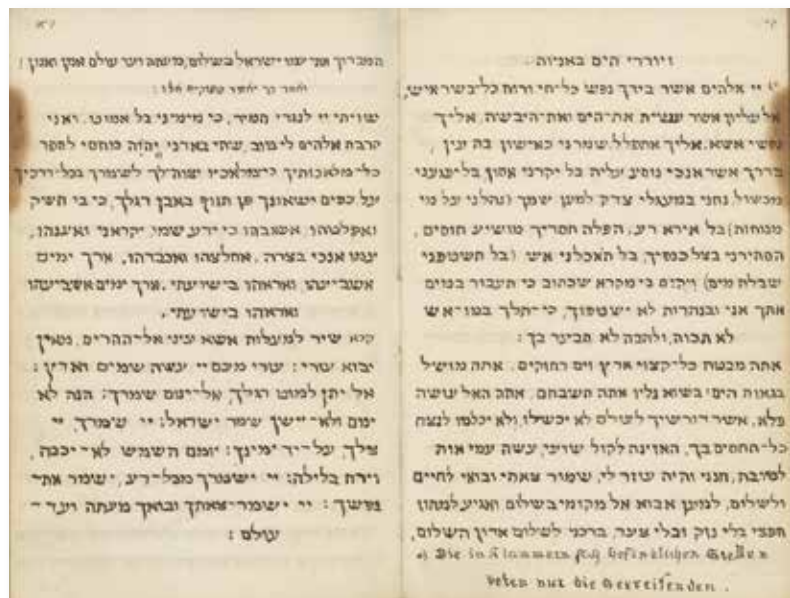 ויורדי הים באניות
יי אלהים אשר בידך נפש כל־חי ורוח כל־בשר איש,
אל עליון אשר עשית את־הים ואת־היבשה. אליך
נפשי אשא. אליך אתפלל, שמרני כאישון בת עין,
בדרך אשר אנכי נוסע עליה בל יקרני אסון בל יפגעני
מכשול, נחני במעגלי צדק למען שמך (נהלני על מי
מנוחות) בל אירא רע, הפלה חסדיך מושיע חוסים,
הסתירני בצל כנפיך, בל תאכלני אש (בל תשטפני
שבלת מים) ויקים בי מקרא שכתוב כי תעבור במים
אתך אני ובנהרות לא ישטפוך, כי־תלך במו־אש
לא תכוה, ולהבה לא תבער בך:
אתה מבטח כל־קצוי ארץ וים רחוקים. אתה מושל
בגאות הים בשוא גליו אתה תשבחם. אתה האל עושה
פלא, אשר דורשיך לעולם לא יכשלו, ולא יכלמו לנצח
כל־החסים בך, האזינה לקול שועי, עשה עמי אות
לטובה, חנני והיה עוזר לי, שמור צאתי ובואי לחיים
ולשלום, למען אבוא אל מקומי בשלום ואגיע למחוז
חפצי בלי נזק ובלי צער, ברכני לשלום אדון השלום,
*) Die in Klammern sich befindlichen Stellen
beten nur die Seereisenden.
המברך את עמו ישראל בשלום, מעתה ועד עולם אמן ואמן:
ואחר כך יאמר פסוקים אלו:
שויתי יי לנגדי תמיד, כי מימיני בל אמוט. ואני
קרבת אלהים לי טוב, שתי באדני יהוה מחסי לספר
כל־מלאכותיך כי מלאכיו יצוה־לך לשמרך בכל־דרכיך
על־כפים ישאונך פן תגוף באבן רגלך, כי בי חשק
ואפלטהו, אשגבהו כי ידע שמי, יקראני ואענהו,
עמו אנכי בצרה, אחלצהו ואכבדהו, ארך ימים
אשביעהו ואראהו בישועתי, ארך ימים אשביעהו
ואראהו בישועתי.
קכא שיר למעלות אשא עיני אל־ההרים, מאין
יבוא עזרי: עזרי מעם יי עשה שמים וארץ:
אל יתן למוט רגלך, אל־ינום שמרך: הנה לא
ינום ולא־יישן שמר ישראל: יי שמרך, יי
צלך, על־יד ימינך: יומם השמש לא־יככה,
וירח בלילה: יי ישמרך מכל־רע, ישמר את־
נפשך: יי ישמר־צאתך ובואך מעתה ועד־
עולם: